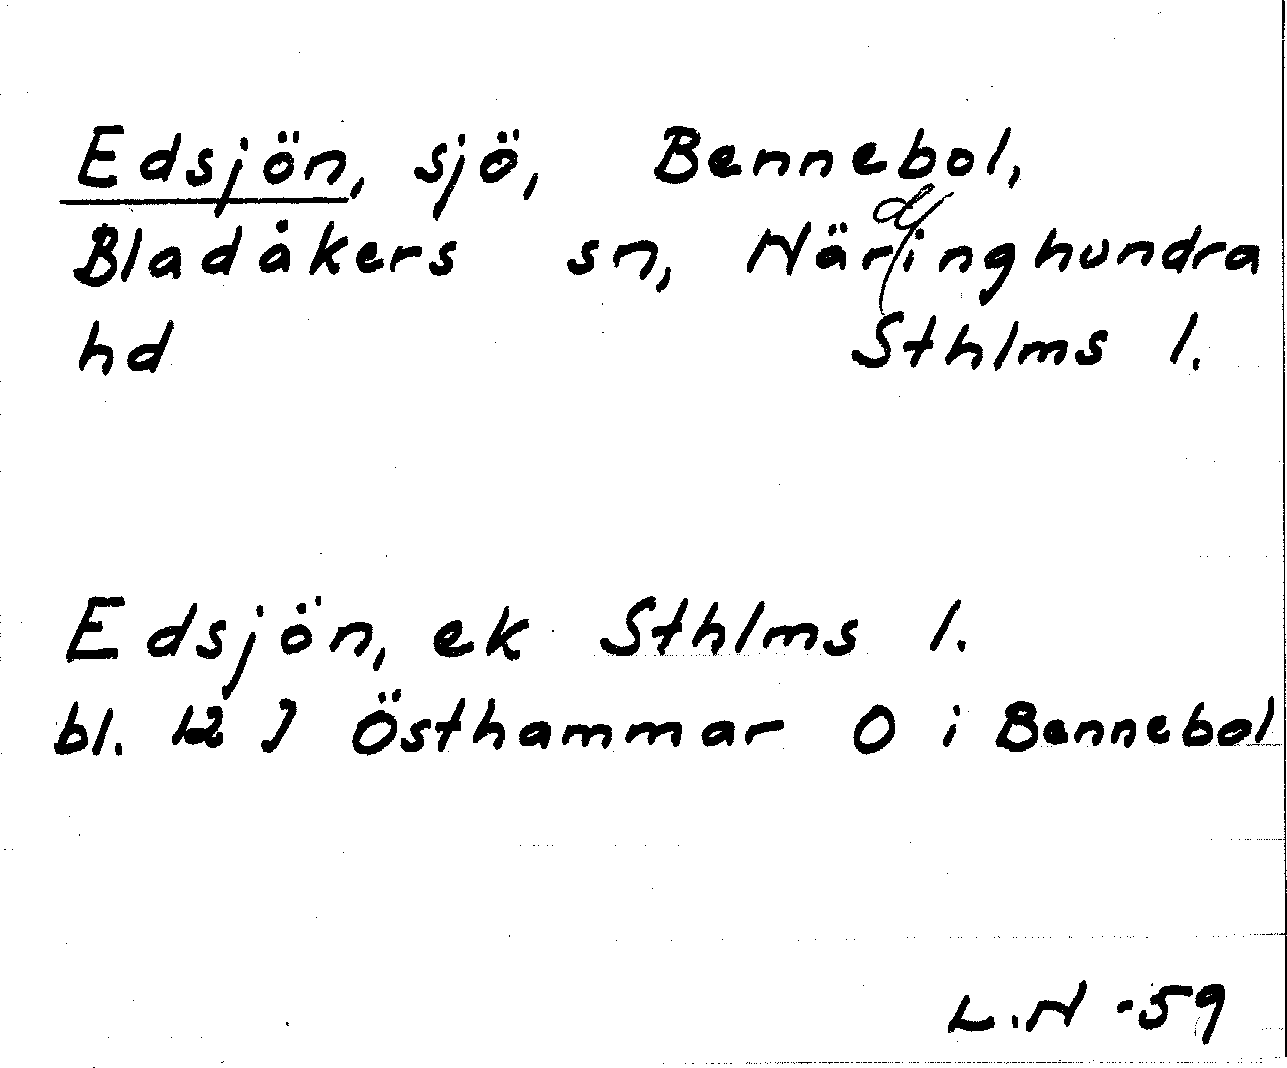 Edsjön, sjö, Bennebol,
Bladåkers sn, Närdinghundra
hd Sthlms l.
Edsjön, ek Sthlms l.
bl. 12 J Östhammar O i Bennebol
L.N -59